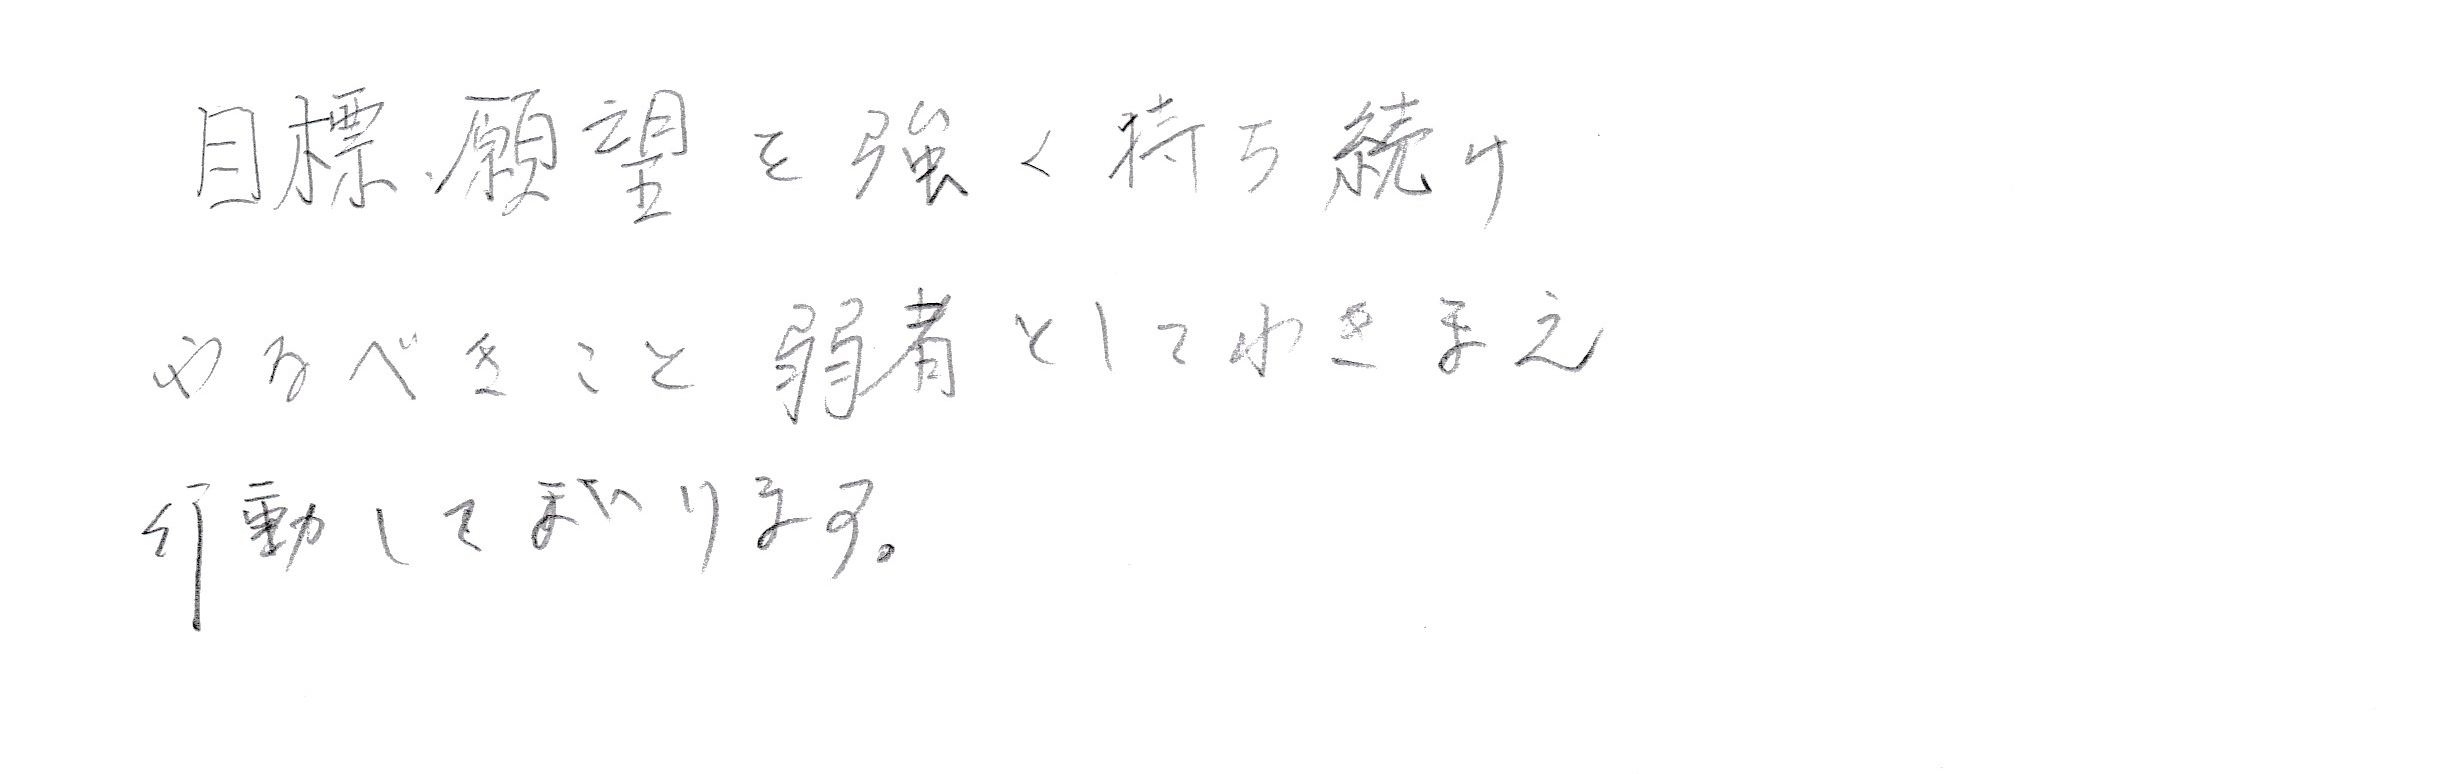 目標、願望を強く持ち続け
やるべきこと弱者としてわきまえ
行動してまいります。